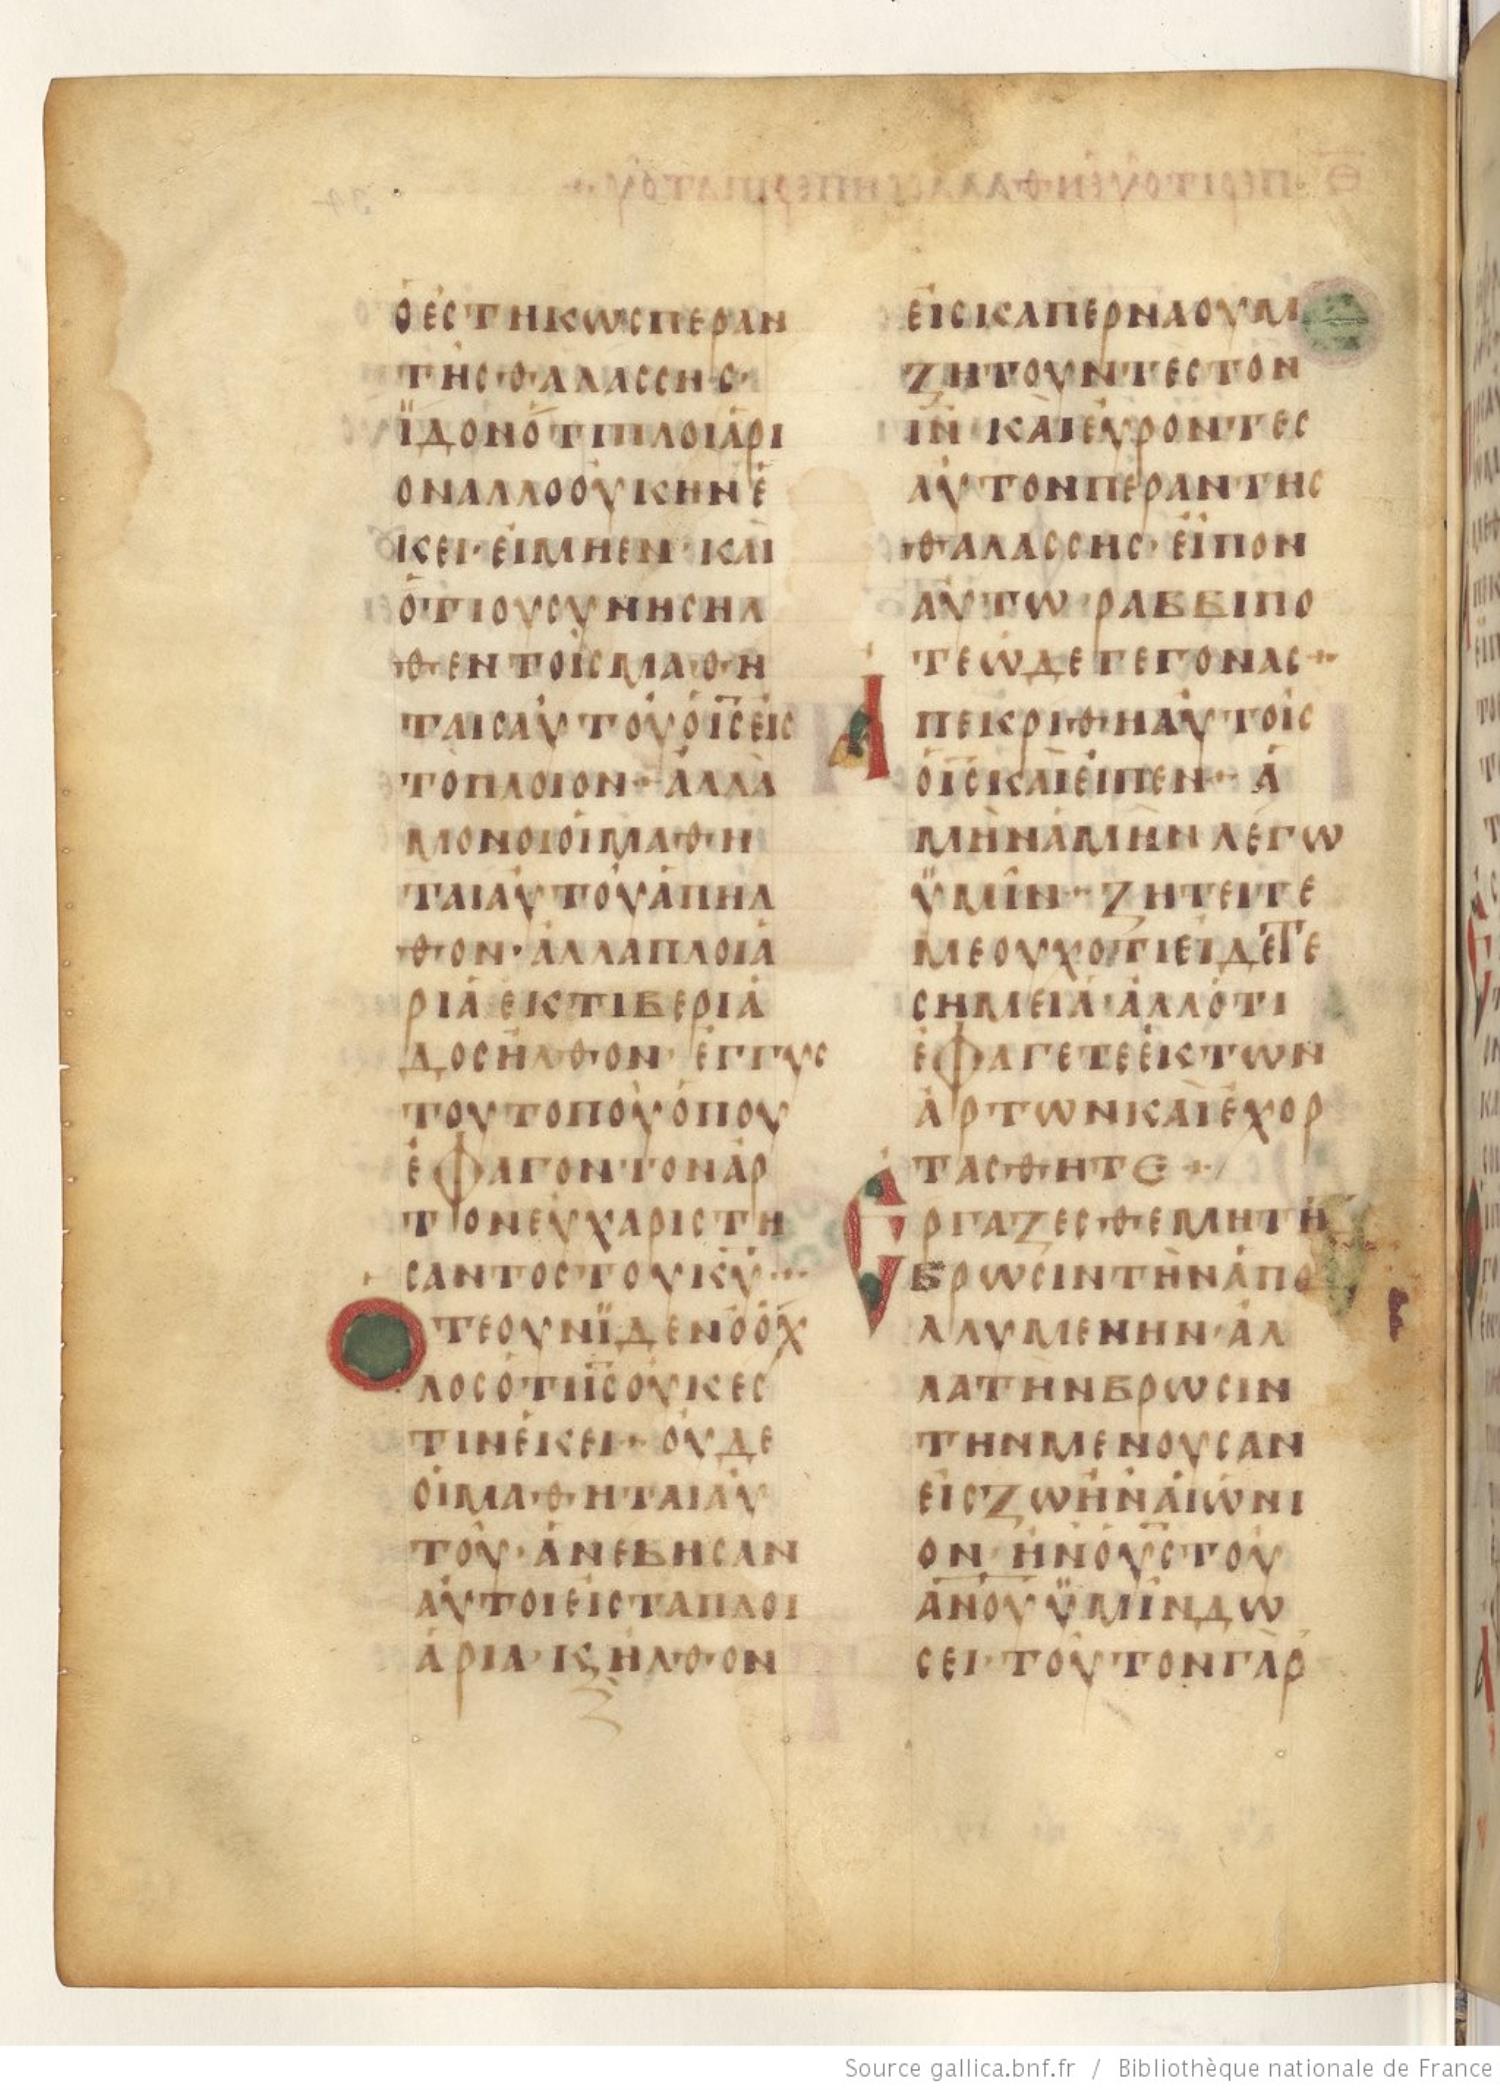 ὁ ἑστηκὼς πέραν
τῆς θαλάσσης·
ἴδον ὅτι πλοιάρι
ον ἄλλο οὐκ ἦν ἐ
κεῖ· εἰ μὴ ἕν· καὶ
ὅτι οὐ συνησῆλ
θεν τοῖς μαθη
ταῖς αὐτοῦ ὁ ις εἰς
τὸ πλοῖον· ἀλλὰ
μόνοι οἱ μαθη
ταὶ αὐτοῦ ἀπῆλ
θον· ἄλλα πλοιά
ρια ἐκ τιβεριά
δος ἦλθον· ἐγγὺς
τοῦ τόπου ὅπου
ἔφαγον τὸν ἄρ
τον εὐχαριστή
σαντος τοῦ κυ·
Ὅτε οὖν ἴδεν ὁ ὄχ
λος ὅτι ις οὐκ ἔσ
τιν ἐκεῖ· οὐδὲ
οἱ μαθηταὶ αὐ
τοῦ· ἀνέβησαν
αὐτοὶ εἰς τὰ πλοι
άρια· κ ἦλθον
εἰς καπερναοὺμ
ζητοῦντες τὸν
ιν καὶ εὑρόντες
αὐτὸν πέραν τῆς
θαλάσσης· εἶπον
αὐτῶ ῥαββὶ πό
τε ὧδε γέγονας·
Ἀπεκρίθη αὐτοῖς
ὁ ις καὶ εἶπεν· ἀ
μὴν ἀμὴν λέγω
ὑμῖν· ζητεῖτε
με οὐχ ὅτι εἴδετε
σημεῖα· ἀλλ ὅτι
ἐφάγετε ἐκ τῶν
ἄρτων καὶ ἐχορ
τάσθητε·
Ἐργάζεσθε μὴ τὴ
βρῶσιν τὴν ἀπο
λλυμένην· ἀλ
λὰ τὴν βρῶσιν
τὴν μένουσαν
εἰς ζωὴν αἰώνι
ον· ἣν ὁ υς τοῦ
ανου ὑμῖν δώ
σει· τοῦτον γὰρ
Source gallica.bnf.fr / Bibliothèque nationale de France